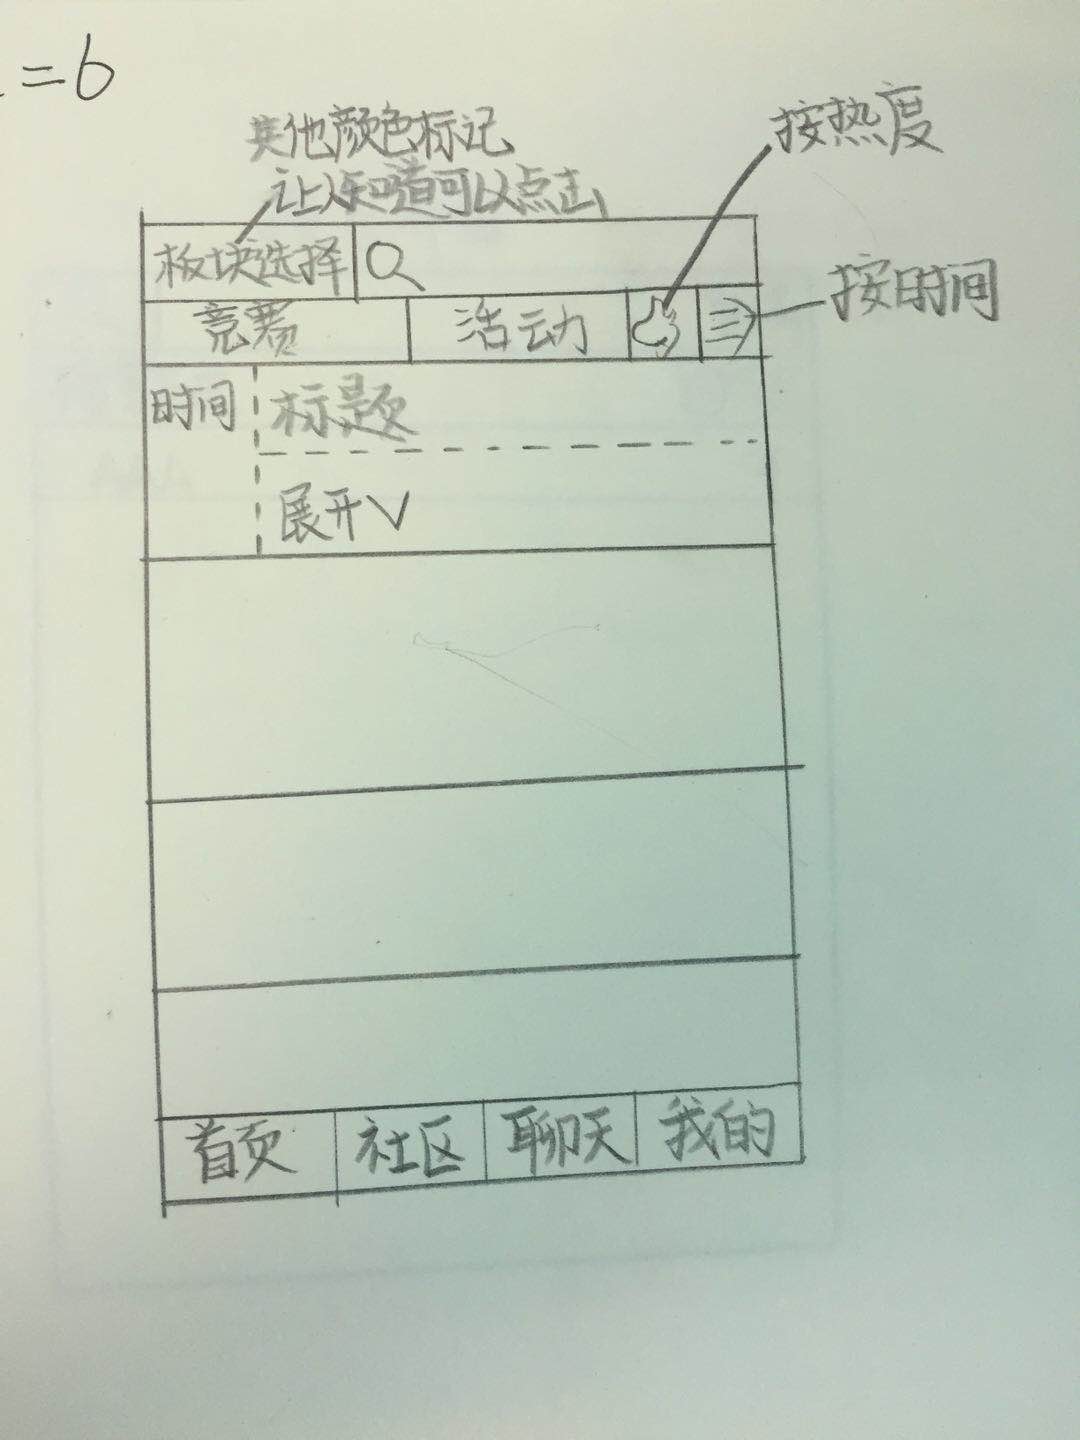 =6
其他颜色标记
让人知道可以点击
按热度
板块选择
竞赛 活动
按时间
时间 标题
展开∨
首页 社区 聊天 我的